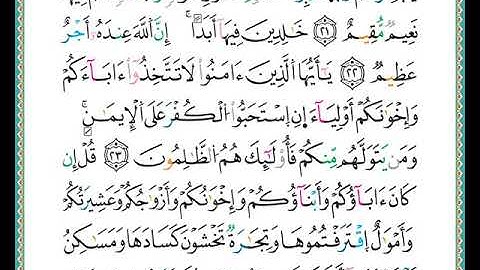 نَعِيمٌ مُّقِيمٌ ﴿٢١﴾ خَٰلِدِينَ فِيهَآ أَبَدًا ۚ إِنَّ ٱللَّهَ عِندَهُۥٓ أَجْرٌ
عَظِيمٌ ﴿٢٢﴾ يَٰٓأَيُّهَا ٱلَّذِينَ ءَامَنُوا۟ لَا تَتَّخِذُوٓا۟ ءَابَآءَكُمْ
وَإِخْوَٰنَكُمْ أَوْلِيَآءَ إِنِ ٱسْتَحَبُّوا۟ ٱلْكُفْرَ عَلَى ٱلْإِيمَٰنِ ۚ
وَمَن يَتَوَلَّهُم مِّنكُمْ فَأُو۟لَٰٓئِكَ هُمُ ٱلظَّٰلِمُونَ ﴿٢٣﴾ قُلْ إِن
كَانَ ءَابَآؤُكُمْ وَأَبْنَآؤُكُمْ وَإِخْوَٰنُكُمْ وَأَزْوَٰجُكُمْ وَعَشِيرَتُكُمْ
وَأَمْوَٰلٌ ٱقْتَرَفْتُمُوهَا وَتِجَٰرَةٌ تَخْشَوْنَ كَسَادَهَا وَمَسَٰكِنُ